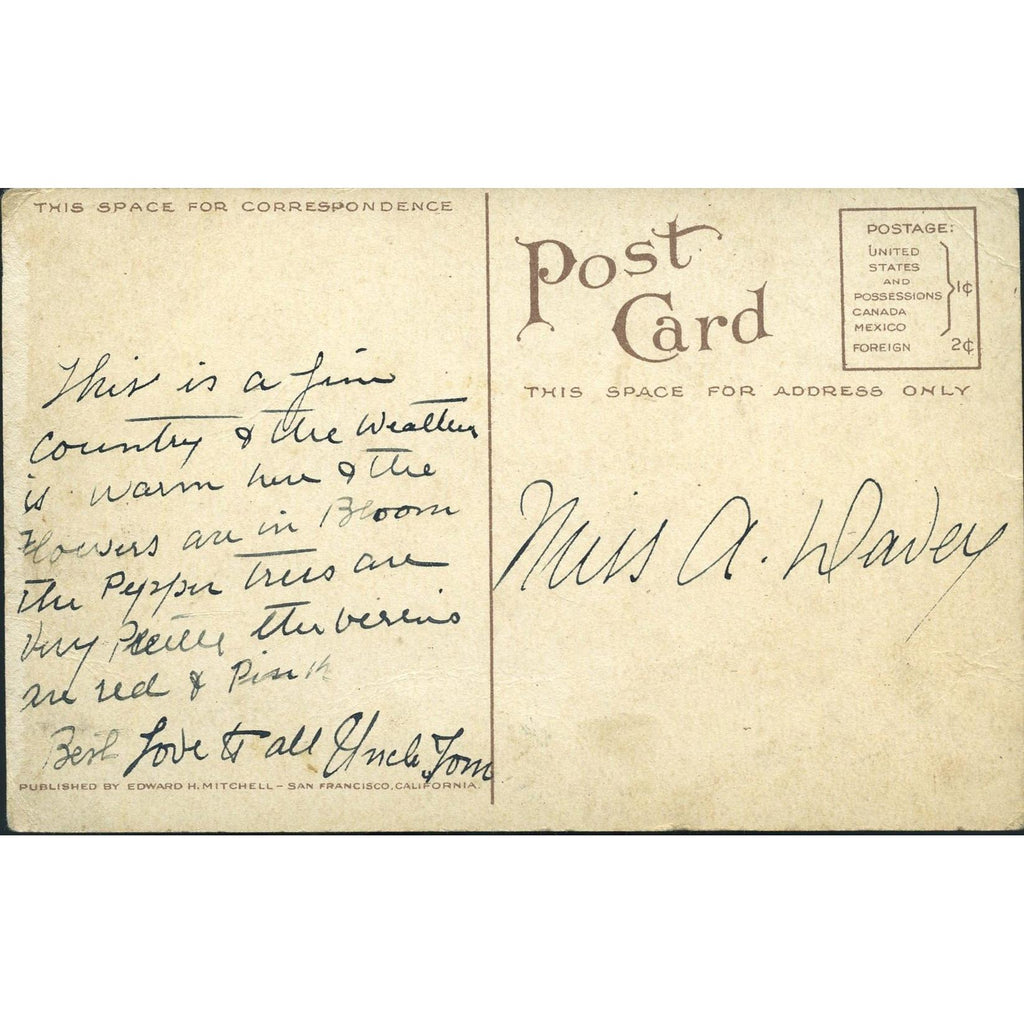 THIS SPACE FOR CORRESPONDENCE
This is a fine
Country & the Weather
is warm here & the
Flowers are in Bloom
the Pepper trees are
Very the
are red & Pink
Best Love to all Uncle Tom
PUBLISHED BY EDWARD H. MITCHELL – SAN FRANCISCO, CALIFORNIA.
Post
Card
THIS SPACE FOR ADDRESS ONLY
POSTAGE:
UNITED
STATES
AND
POSSESSIONS 1¢
CANADA
MEXICO
FOREIGN 2¢
Miss A. Davey